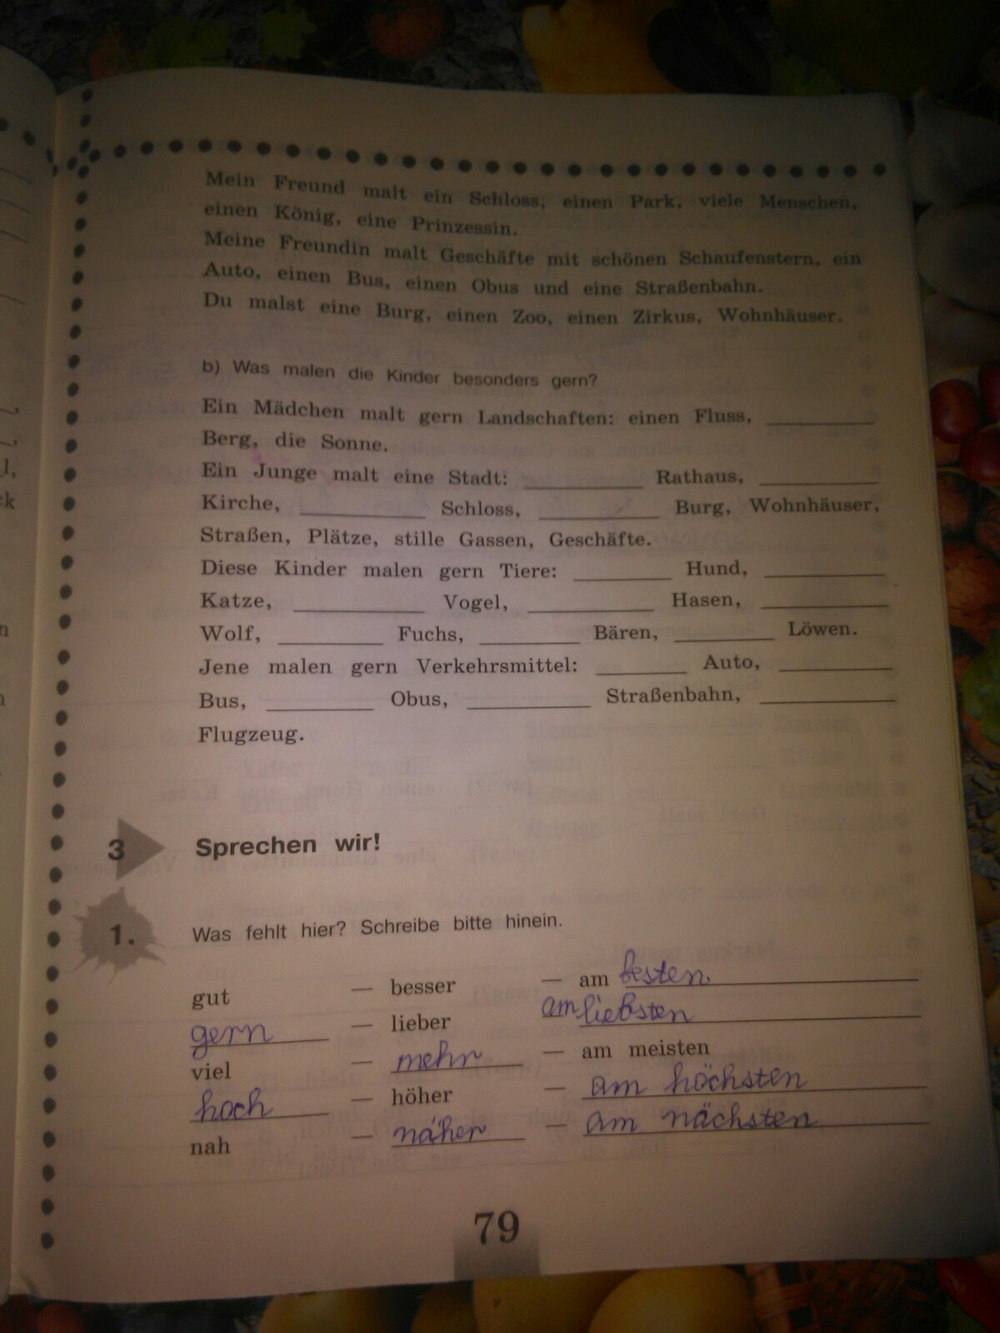 Mein Freund malt ein Schloss, einen Park, viele Menschen,
einen König, eine Prinzessin.
Meine Freundin malt Geschäfte mit schönen Schaufenstern, ein
Auto, einen Bus, einen Obus und eine Straßenbahn.
Du malst eine Burg, einen Zoo, einen Zirkus, Wohnhäuser.
b) Was malen die Kinder besonders gern?
Ein Mädchen malt gern Landschaften: einen Fluss, ________
Berg, die Sonne.
Ein Junge malt eine Stadt: ________ Rathaus, ________
Kirche, ________ Schloss, ________ Burg, Wohnhäuser,
Straßen, Plätze, stille Gassen, Geschäfte.
Diese Kinder malen gern Tiere: ________ Hund, ________
Katze, ________ Vogel, ________ Hasen, ________
Wolf, ________ Fuchs, ________ Bären, ________ Löwen.
Jene malen gern Verkehrsmittel: ________ Auto, ________
Bus, ________ Obus, ________ Straßenbahn, ________
Flugzeug.
3 Sprechen wir!
1. Was fehlt hier? Schreibe bitte hinein.
gut — besser — am besten
gern — lieber — am liebsten
viel — mehr — am meisten
hoch — höher — am höchsten
nah — näher — am nächsten
79